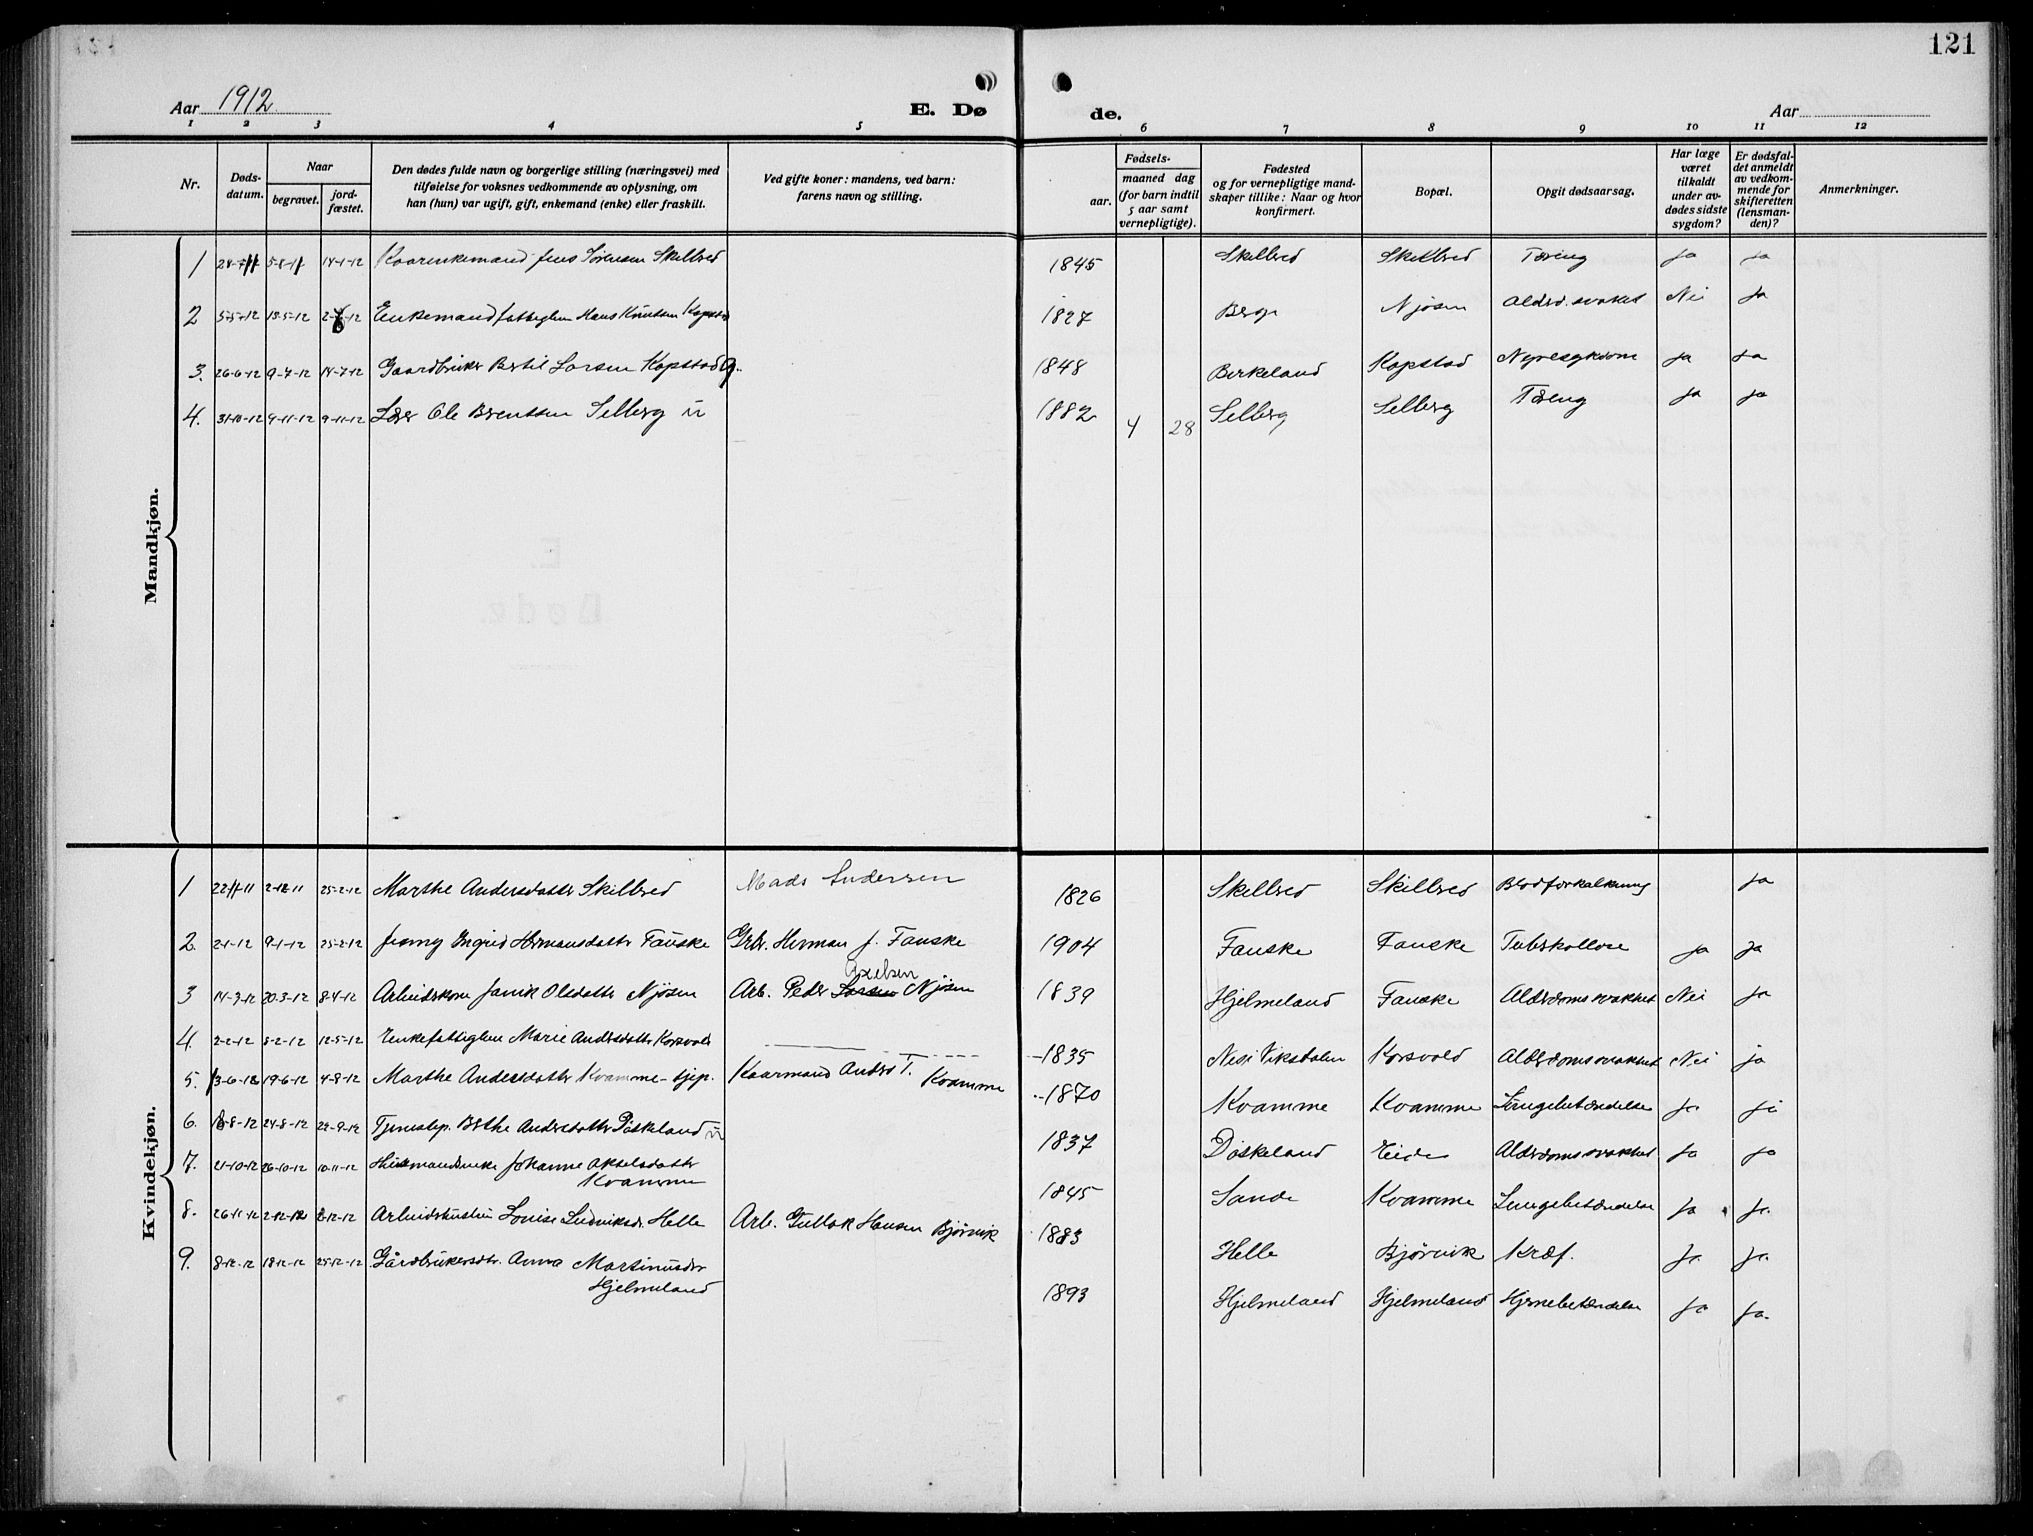 121
Aar 1912
E. Dø
de.
Aar
1 2 3 4 5 6 7 8 9 10 11 12
Nr.
Døds-
datum.
Naar
begravet.
jord-
fæstet.
Den dødes fulde navn og borgerlige stilling (næringsvei) med
tilføielse for voksnes vedkommende av oplysning, om
han (hun) var ugift, gift, enkemand (enke) eller fraskilt.
Ved gifte koner: mandens, ved barn:
farens navn og stilling.
Fødsels-
aar.
maaned dag
(for barn indtil
5 aar samt
vernepligtige).
Fødested
og for vernepligtige mand-
skaper tillike: Naar og hvor
konfirmert.
Bopæl.
Opgit dødsaarsag.
Har læge
været
tilkaldt
under av-
dødes sidste
sygdom?
Er dødsfal-
det anmeldt
av vedkom-
mende for
skifteretten
(lensman-
den)?
Anmerkninger.
Mandkjøn.
1 14-1-12 Kaarenkemand Jens Sørensen Skilbred 1845 Skilbred Skilbred Tæring ja ja
2 5-5-12 13-5-12 Enkemand fattiglem Hans Knutsen Kopstad 1827 Berge Njøsen Aldrd. svakhet Nei Ja
3. 26-6-12 9-7-12 14-7-12 Gaardbruker Bertil Larsen Kopstad g. 1848 Birkeland Kopstad Nyresygdom ja ja
4. 31-10-12 9-11-12 9-11-12 Lærer Ole Berentsen Selberg u 1882 4 28 Selberg Selberg Tæring ja ja
Kvindekjøn.
1 22-11-11 2-12-11 25-2-12 Marthe Andersdatter Skilbred Mads Andersen 1826 Skilbred Skilbred Blodforkalkning ja
2. 2-1-12 9-1-12 25-2-12 Jenny Ingrid Hermansdatter Fauske Grbr. Herman J. Fauske 1904 Fauske Fauske Tuberkollose ja ja
Axelsen
3 14-3-12 20-3-12 8-4-12 Arbeidskone Janik Olsdatter Njøsen Arb. Peder Larsen Njøsen 1839 Hjelmeland Fauske Alderdomssvakhet Nei ja
4. 2-2-12 8-2-12 12-5-12 Enke fattiglem Marie Andersdatter Korsvold 1835 Nesi Viksdalen Korsvold Alderdomssvakhet Nei ja
5. 13-6-12 19-6-12 4-8-12 Marthe Andersdatter Kvamme - tjep. Kaarmand Anders T. Kvamme 1870 Kvamme Kvamme Lungebetændelse ja ja
6. 18-8-12 24-8-12 22-9-12 Tjenestep. Berthe Andersdatter Døskeland u 1837 Døskeland Eide Alderdomssvakhet ja ja
7. 21-10-12 26-10-12 10-11-12 Husmandsenke Johanne Akselsdatter
Kvamme 1845 Sande Kvamme Lungebetændelse ja ja.
8. 26-11-12 2-12-12 2-12-12 Arbeidshustru Louise Ludviksdr. Helle Arb. Gullak Hansen Bjørvik 1883 Helle Bjørvik Kræf. ja. ja.
9. 8-12-12 18-12-12 25-12-12 Gårdbrukersdtr. Anna Martinusdtr
Hjelmeland 1893 Hjelmeland Hjelmeland Hjernebetændelse ja ja.